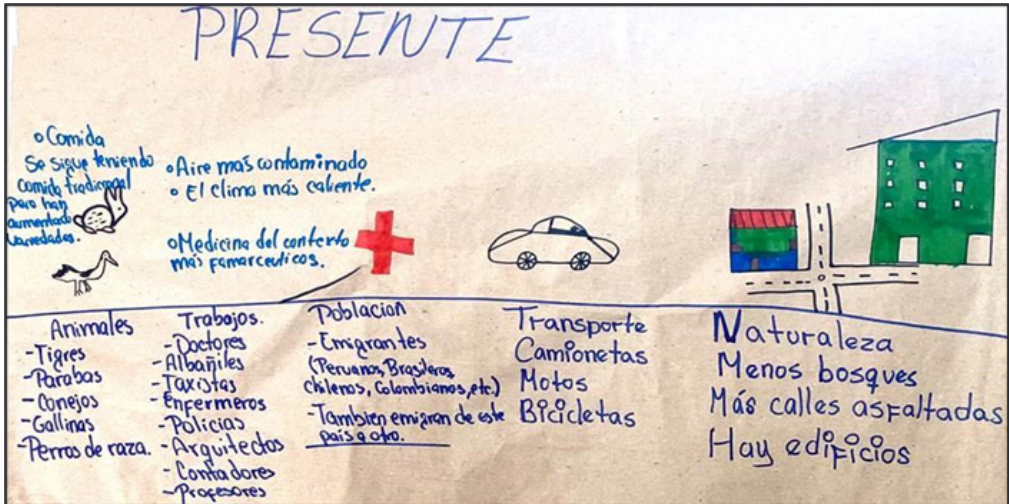 PRESENTE
o Comida
Se sigue teniendo
comida tradicional
Pero han
aumentado
variedades.
o Aire más contaminado
o El clima más caliente.
o Medicina del contexto
más famarceuticos.
Animales
-Tigres
-Parabas
-Conejos
-Gallinas
-Perros de raza.
Trabajos.
-Doctores
-Albañiles
-Taxistas
-Enfermeros
-Policias
-Arquitectos
-Contadores
-Profesores
Poblacion
-Emigrantes
(Peruanos, Brasileros
chilenos, Colombianos, etc.)
-Tambien emigran de este
pais a otro.
Transporte
Camionetas
Motos
Bicicletas
Naturaleza
Menos bosques
Más calles asfaltadas
Hay edificios